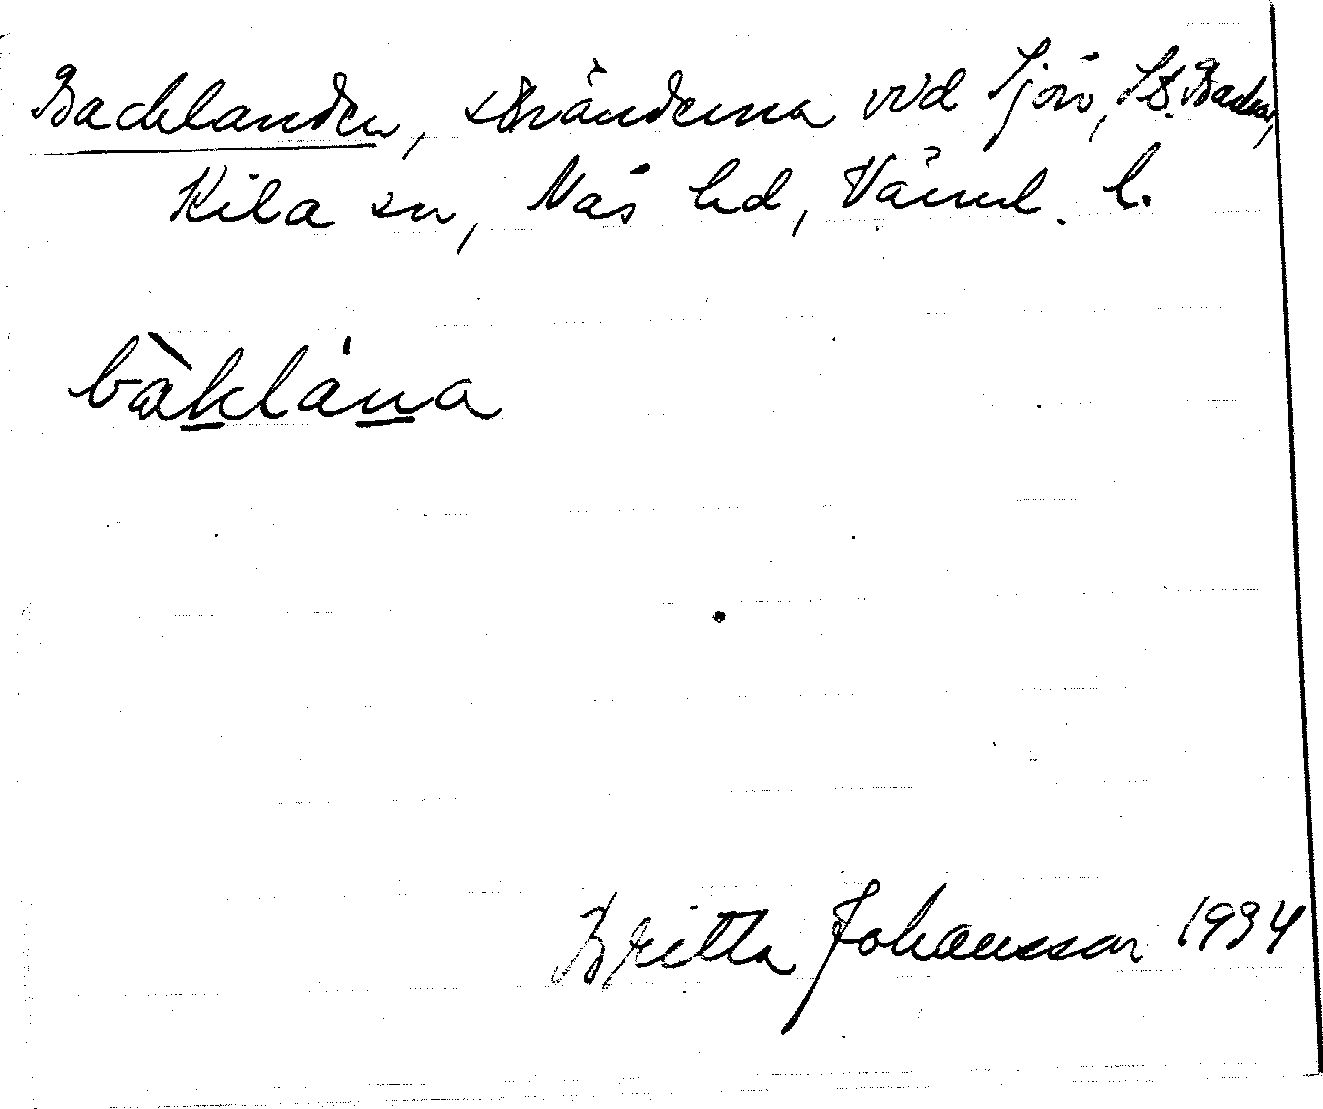 Backlanden, stränderna vid Sjöv, St. Backa,
Kila sn, Näs hd, Värml. l.
bàklána
Britta Johansson 1934